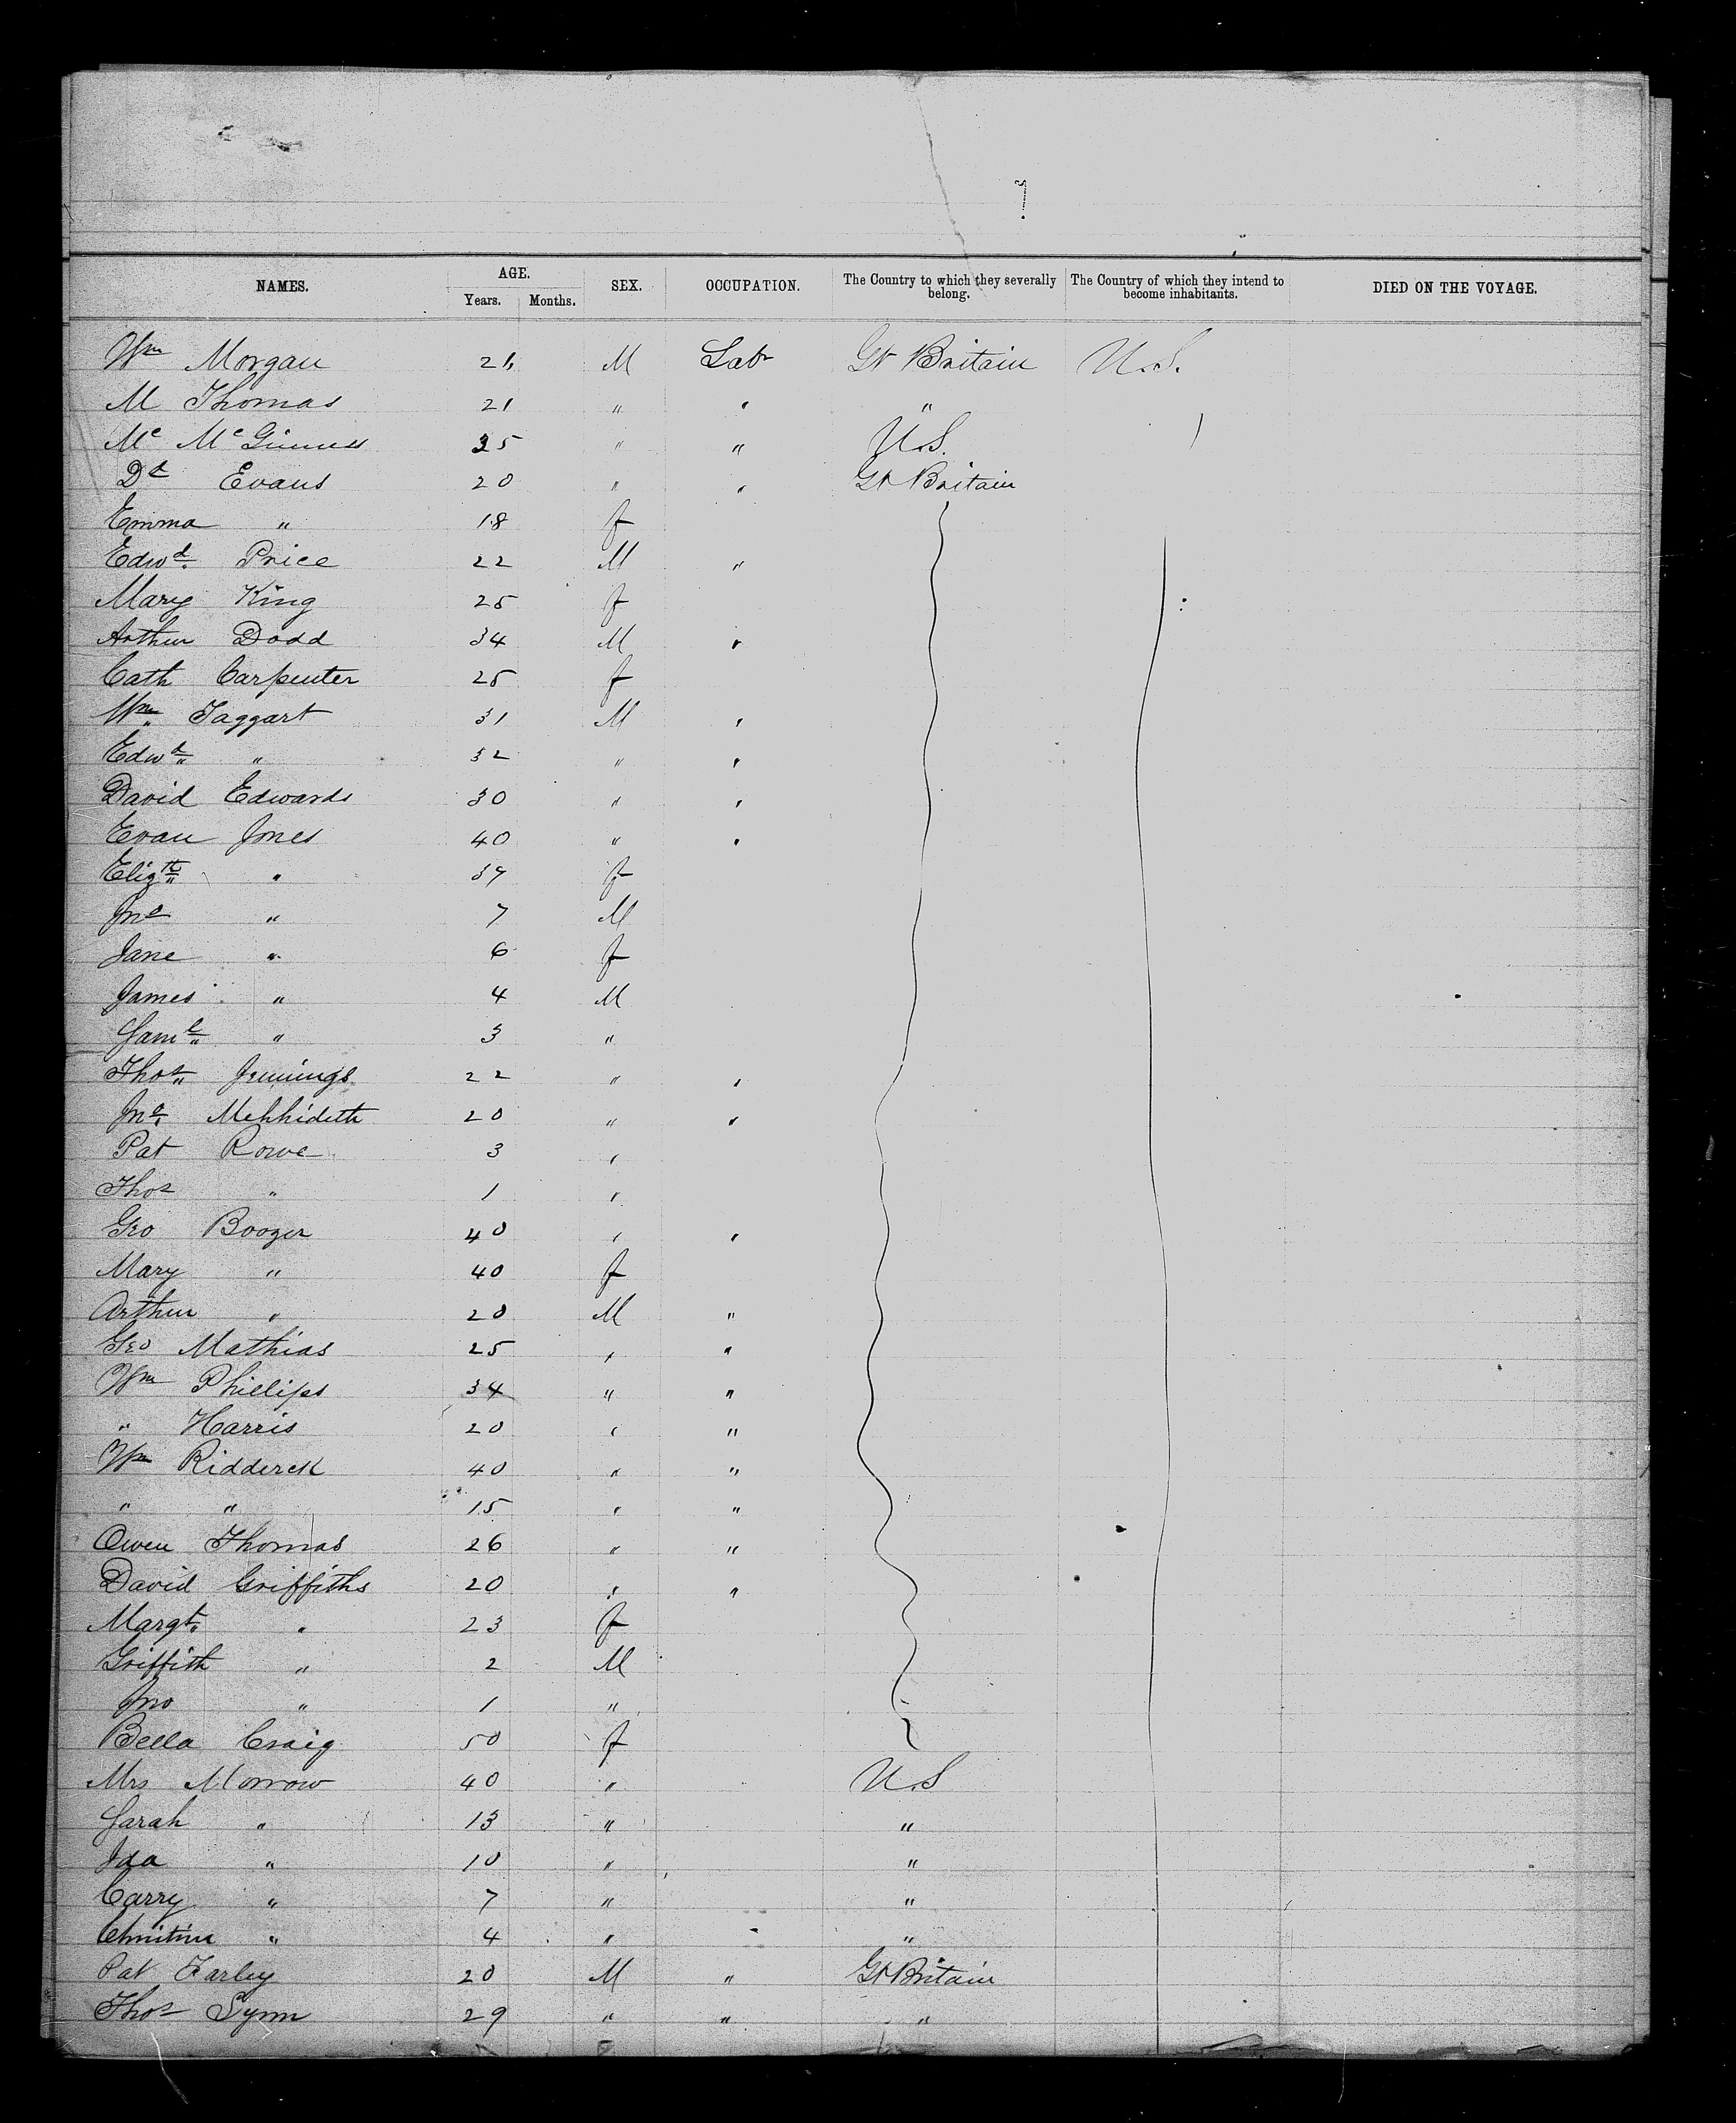 7
NAMES. AGE. Years. Months. SEX. OCCUPATION. The Country to which they severally belong. The Country of which they intend to become inhabitants. DIED ON THE VOYAGE.
Wm Morgan 26 M Labr Gt Britain U.S.
M Thomas 21 " " "
Mc McGinness 35 " " U.S.
Dd Evans 20 " " Gt Britain
Emma " 18 f
Edwd Price 22 M "
Mary King 25 f
Arthur Dodd 34 M "
Cath Carpenter 25 f
Wm Taggart 31 M "
Edwd " 32 " "
David Edwards 30 " "
Evan Jones 40 " "
Elizth " 39 f
Jno " 7 M
Jane " 6 f
James " 4 M
Saml " 3 "
Thos Jennings 22 " "
Jno 20 " "
Pat Rowe 3 "
Thos " 1 "
Geo Boozer 40 " "
Mary " 40 f
Arthur " 20 M "
Geo Mathias 25 " "
Wm Phillips 34 " "
" Harris 20 " "
Wm Ridderck 40 " "
" " 15 " "
Owen Thomas 26 " "
David Griffiths 20 " "
Margt " 23 f
Griffith " 2 M
Jno " 1 "
Bella Craig 50 f
Mrs Morrow 40 " U.S
Sarah " 13 " "
Ida " 10 " "
Carry " 7 " "
Christina " 4 " "
Pat Farley 20 M " Gt Britain
Thos Lynn 29 " " "